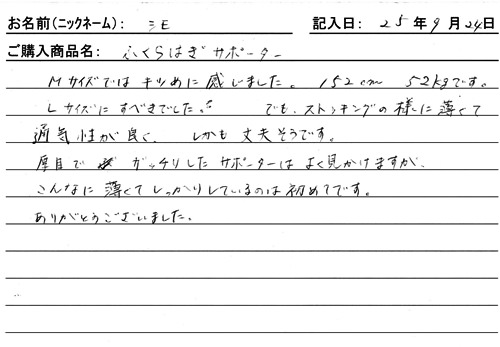 お名前(ニックネーム): ミE 記入日: 25年9月24日
ご購入商品名: ふくらはぎサポーター
Mサイズではキツめに感じました。152cm 52kgです。
Lサイズにすべきでした。 でも、ストッキングの様に薄くて
通気性が良く、しかも丈夫そうです。
厚目でガッチリしたサポーターはよく見かけますが、
こんなに薄くてしっかりしているのは初めてです。
ありがとうございました。